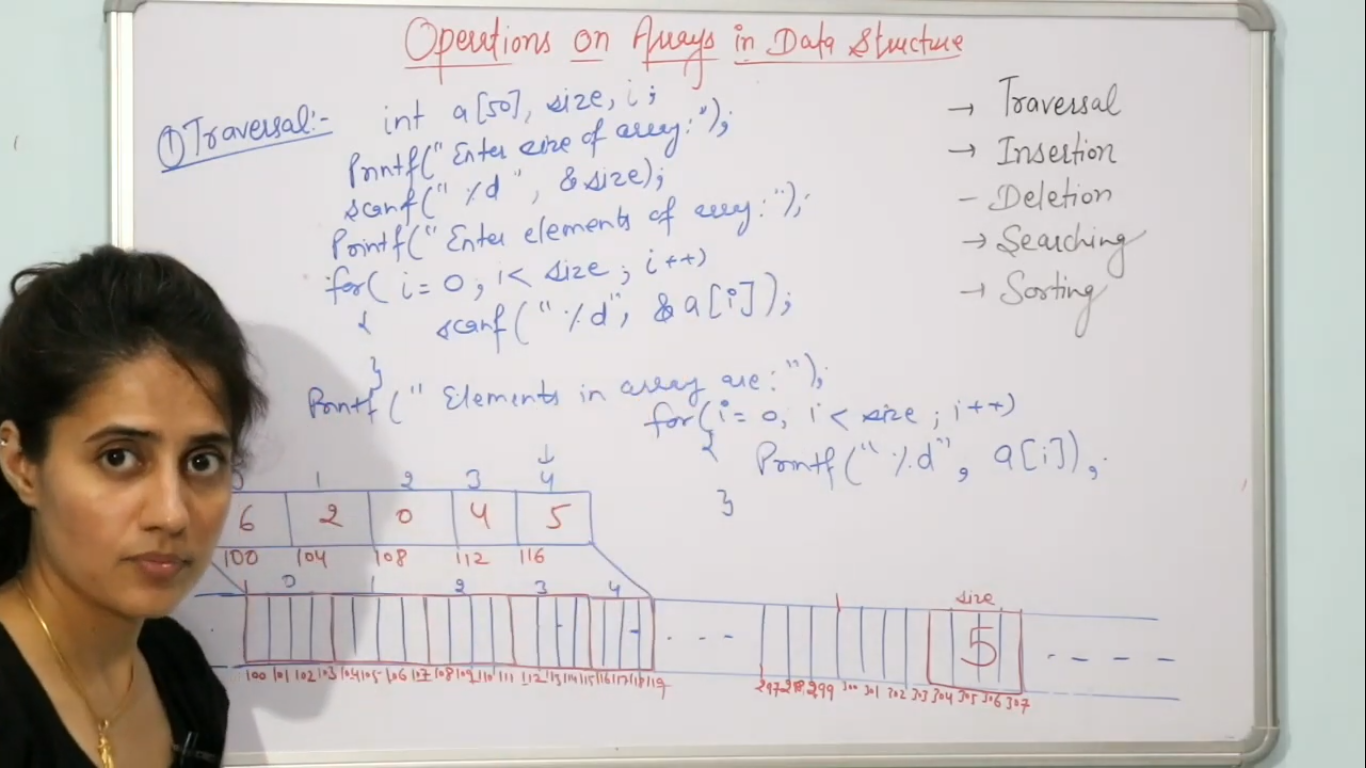 Operations on Arrays in Data Structure
① Traversal:-
int a[50], size, i;
Printf("Enter size of array:");
scanf("%d", &size);
Printf("Enter elements of array:");
for(i=0, i< size; i++)
{ scanf("%d", &a[i]);
}
Printf("Elements in array are:");
for(i=0, i< size; i++)
{ Printf("%d", a[i]);
}
→ Traversal
→ Insertion
- Deletion
→ Searching
→ Sorting
1 2 3 4
6 2 0 4 5
100 104 108 112 116
0 1 2 3 4
size
5
100 101 102 103 104 105 106 107 108 109 110 111 112 113 114 115 116 117 118 119
297 298 299 300 301 302 303 304 305 306 307